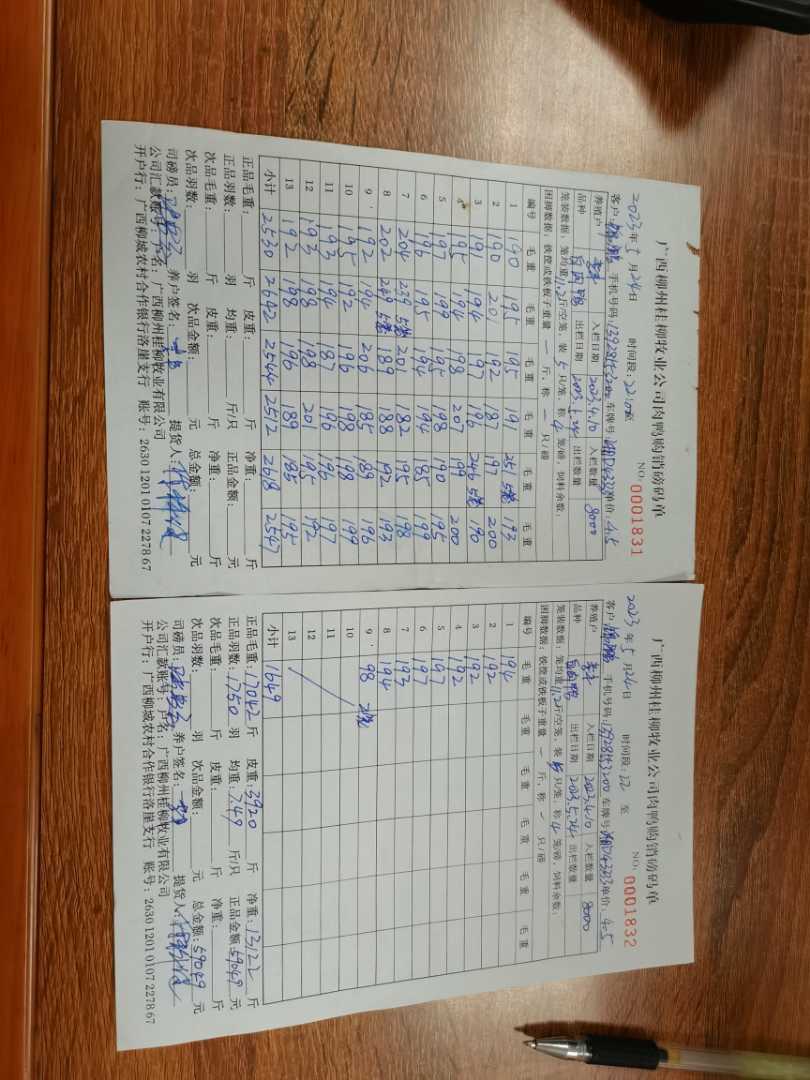 广西柳州桂柳牧业公司肉鸭购销磅码单
NO: 0001831
2023年5月24日 时间段: 22:00至
客户: 手机号码: 车牌号: 单价: 4.5
养殖户 入栏日期 2023.4.10 入栏数量 8000
品种 出栏日期 2023.5.24 出栏数量
笼装数据: 笼均重11.2斤/空笼, 装5只/笼, 称4笼/磅, 饲料余数:
困脚数据: 铁筐或铁板子重量 一 斤, 称 一 只/磅
编号 毛重 毛重 毛重 毛重 毛重 毛重
1 190 195 195 191 251 5笼 193
2 190 201 192 187 197 200
3 191 194 197 196 246 5笼 190
4 195 194 198 207 199 200
5 197 199 195 198 190 195
6 196 195 194 194 185 199
7 204 239 5笼 201 182 195 198
8 202 249 5笼 189 188 192 193
9 192 194 206 185 189 196
10 195 192 196 198 198 199
11 193 194 187 196 196 197
12 193 198 198 201 195 192
13 192 198 196 189 185 195
小计 2530 2642 2544 2512 2618 2547
正品毛重: 斤 皮重: 斤 净重: 斤
正品羽数: 羽 均重: 斤/只 正品金额: 元
次品毛重: 斤 皮重: 斤 净重: 斤
次品羽数: 羽 次品金额: 元 总金额: 元
司磅员: 养户签名: 提货人:
公司汇款账号: 户名: 广西柳州桂柳牧业有限公司
开户行: 广西柳城农村合作银行洛崖支行 账号: 2630 1201 0107 2278 67
广西柳州桂柳牧业公司肉鸭购销磅码单
NO: 0001832
2023年5月24日 时间段: 22 至
客户: 手机号码: 车牌号: 单价: 4.5
养殖户 入栏日期 2023.4.10 入栏数量 8000
品种 出栏日期 2023.5.24 出栏数量
笼装数据: 笼均重11.2斤/空笼, 装5只/笼, 称4笼/磅, 饲料余数:
困脚数据: 铁筐或铁板子重量 一 斤, 称 一 只/磅
编号 毛重 毛重 毛重 毛重 毛重 毛重
1 194
2 192
3 192
4 192
5 197
6 197
7 193
8 194
9 98 2笼
10
11
12
13
小计 1649
正品毛重: 17042斤 皮重: 3920斤 净重: 13122斤
正品羽数: 1750羽 均重: 7.49斤/只 正品金额: 59049元
次品毛重: 斤 皮重: 斤 净重: 斤
次品羽数: 羽 次品金额: 元 总金额: 59049元
司磅员: 养户签名: 提货人:
公司汇款账号: 户名: 广西柳州桂柳牧业有限公司
开户行: 广西柳城农村合作银行洛崖支行 账号: 2630 1201 0107 2278 67